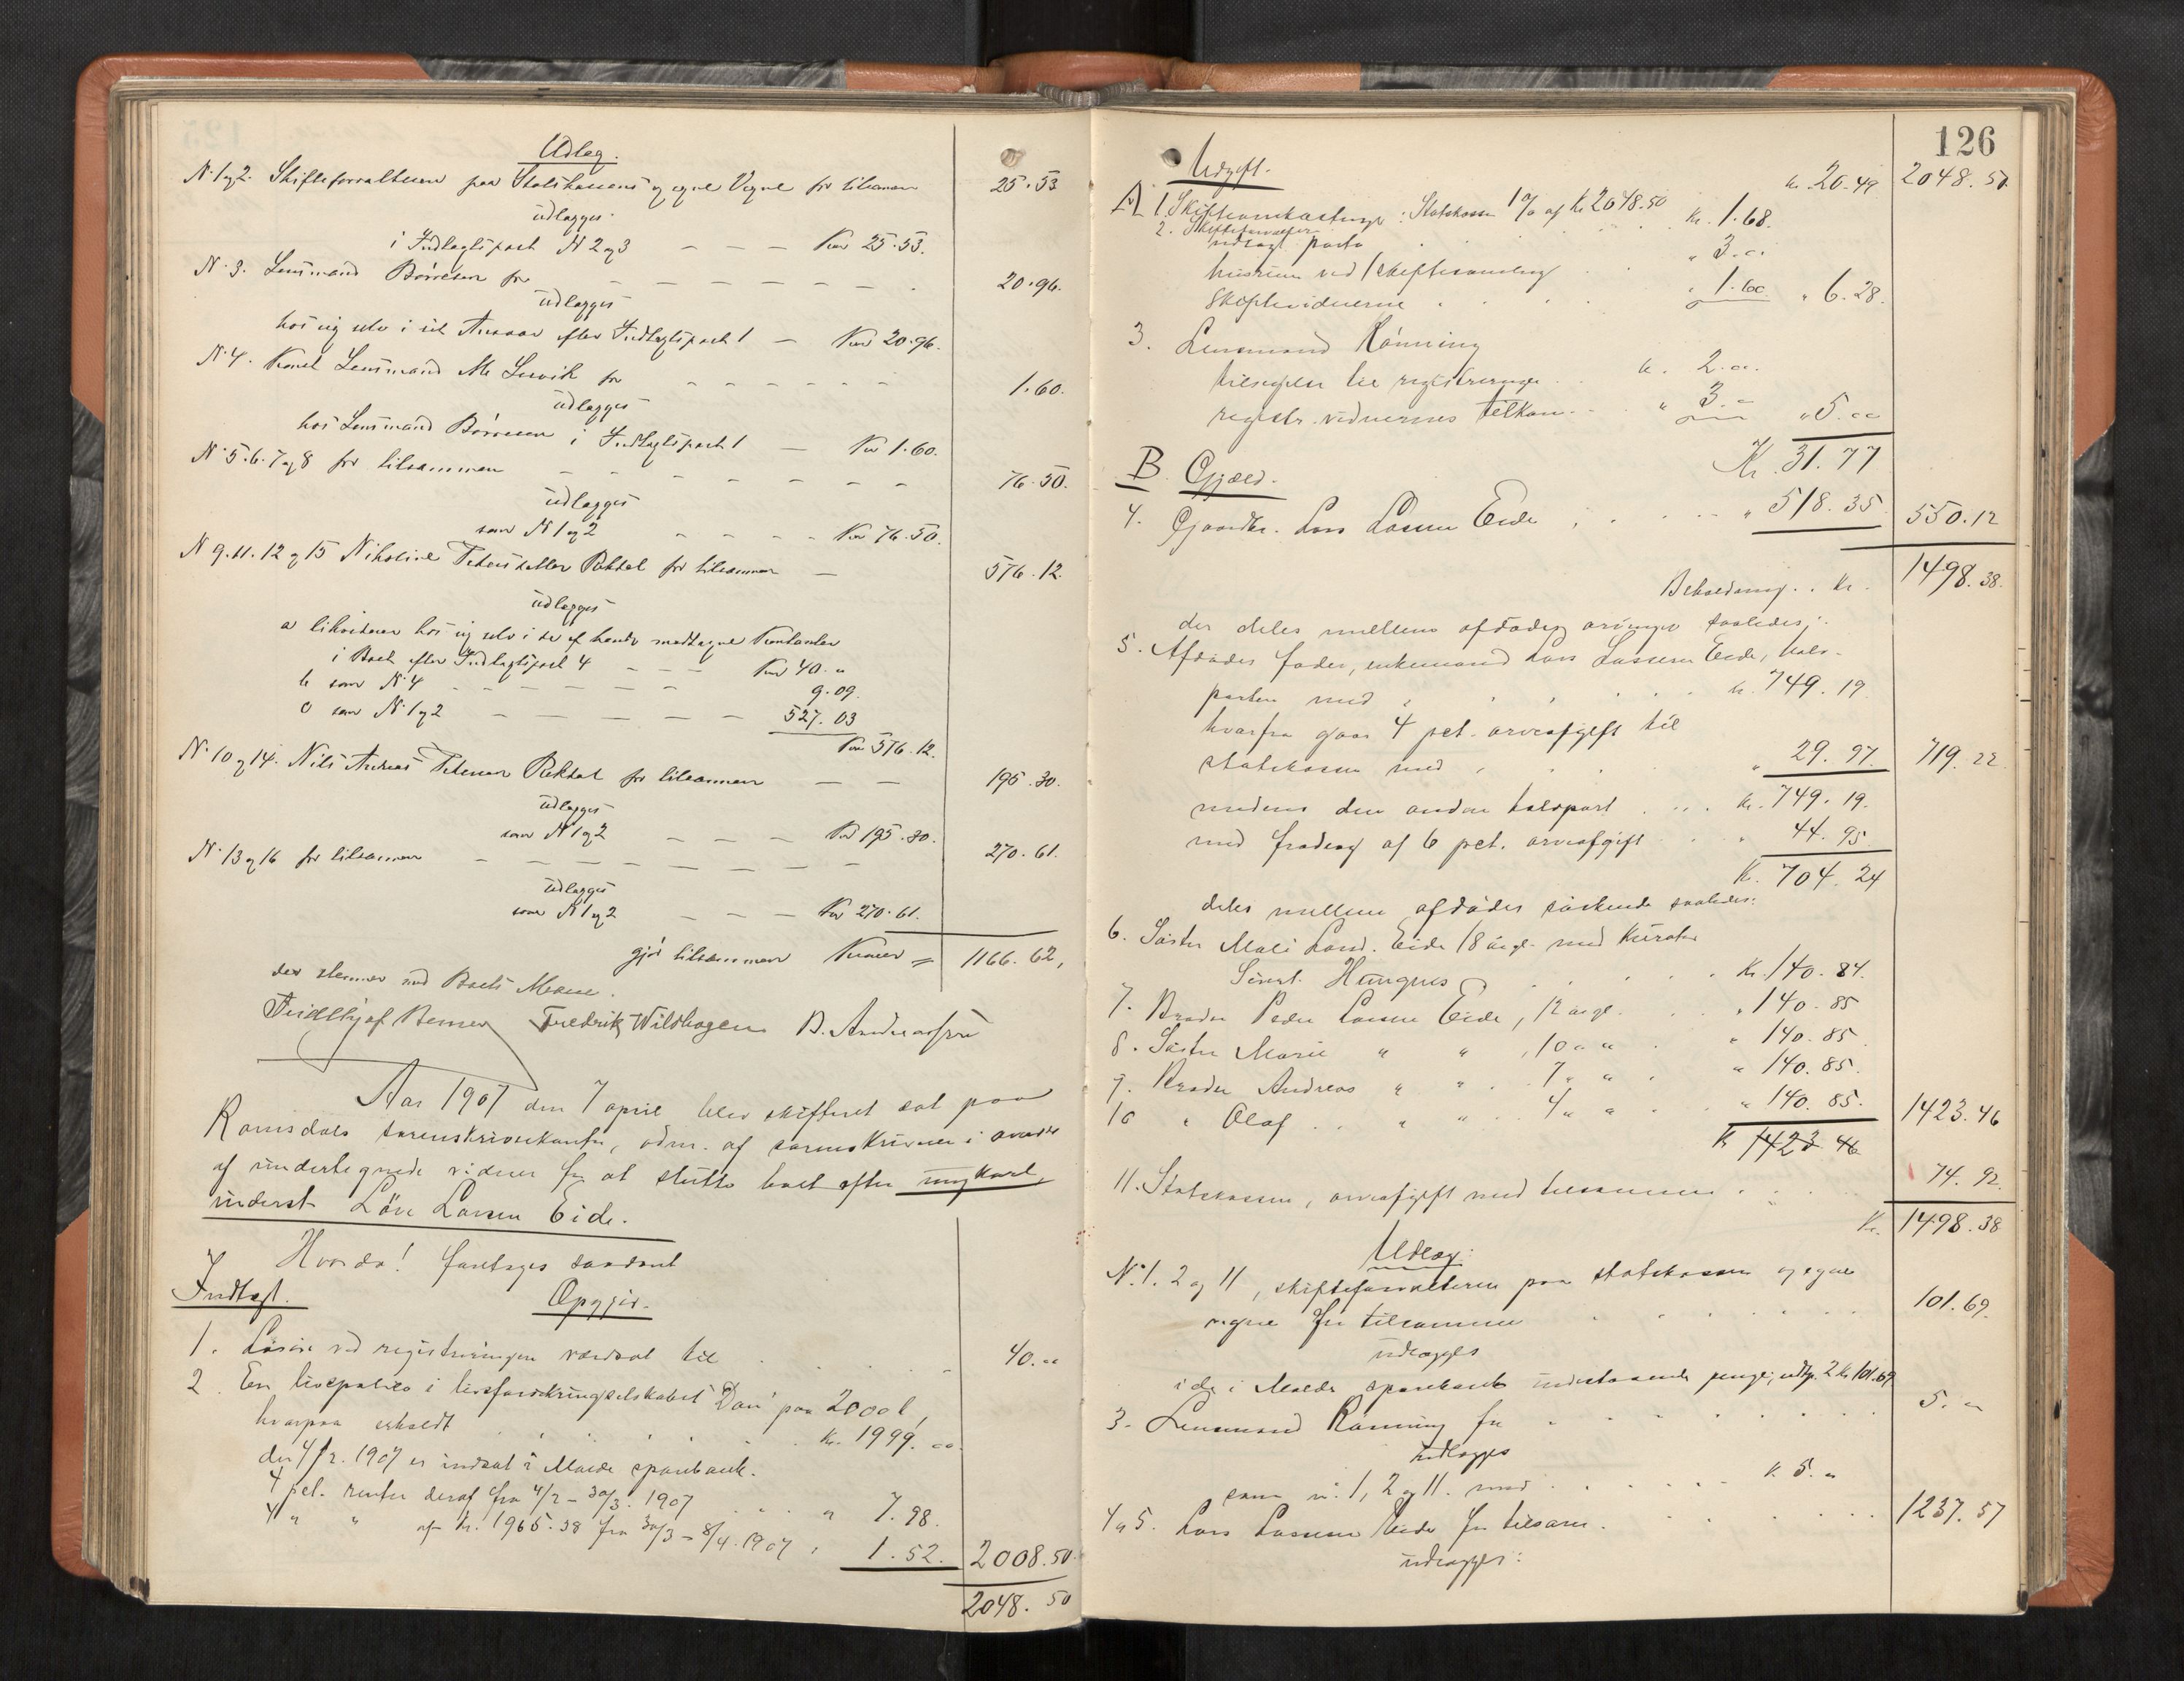 Udlæg.
N. 1 og 2. Skifteforvalteren paa Statskassens og egne Vegne for tilsammen 25.53
udlægges
i Indtægtspost N 2 og 3 – – – Kr 25.53.
N. 3. Lensmand Børresen for – – – – – – – 20.96.
udlægges
hos sig selv i sit Ansvar efter Indtægtspost 1 – Kr 20.96.
N. 4. Const Lensmand for – – – – – – 1.60.
udlægges
hos Lensmand Børresen i Indtægtspost 1 – Kr 1.60.
N. 5. 6. 7 og 8 for tilsammen – – – – – – – 76.50.
udlægges
som N 1 og 2 – – – – Kr 76.50.
N 9. 11. 12 og 15 Nikoline Pedersdatter for tilsammen – 576.12.
udlægges
a likviderer hos sig selv i de af hende modtagne Kontanter
i Boet efter Indtægtspost 4 – – – Kr 40. "
b som N. 4 – – – – – – 9.09.
c som N. 1 og 2 – – – – – – 527.03
Kr 576.12.
N. 10 og 14. Nils Andreas Pedersen for tilsammen – – 195.30.
udlægges
som N 1 og 2 – – – Kr 195.30.
N. 13 og 16 for tilsammen – – – – – – – 270.61.
udlægges
som N 1 og 2 – – – Kr 270.61.
gjør tilsammen Kroner = 1166.62,
der stemmer med Boets Masse.
Fridthjof Fredrik Wildhagen B. Andreassen
Aar 1907 den 7 april blev skifteret sat paa
Romsdals sorenskriverkontor, adm. af sorenskriveren i overvær
af undertegnede vidner for at slutte boet efter ungkarl,
inderst Lars Larsen Eide.
Hvorda! foretages saadant
Indtægt. Opgjør.
1. Løsøre ved registreringen værdsat til . . . . 40. "
2. En livspolice i livsforsikringselskabet Dan paa 2000 l,
hvorpaa erholdt . . . . . Kr. 1999. oo
der 4/2. 1907 er indsat i Molde sparebank.
4 pct. renter deraf fra 4/2 – 30/3. 1907 . . . " 7.98.
4 " " af kr. 1965.38 fra 30/3 – 8/4. 1907 " 1.52. 2008.50
2048. 50
126
Udgift. 2048.50.
A 1. Skifteomkostninger: Statskassen 1 % af Kr 2048.50 kr. 20.49
2. Skifteforvalteren
udlagt porto . . . . Kr. 1.68.
husrum ved skiftesamling . . " 3. oo
skiftevidnerne . . . . " 1.60 " 6.28.
3. Lensmand Rønning
tilsigelse til registreringen . . k. 2. oo.
registr. vidnernes tilkom. . . " 3. – " 5. oo
Kr. 31.77
B. Gjæld.
4. Gaardbr. Lars Larsen Eide . . . . " 518.35 550.12
Beholdning . . Kr. 1498.38.
der deles mellem afdødes arvinger saaledes:
5. Afdødes fader, enkemand Lars Larsen Eide, halv-
parten med . . . . . . kr. 749.19.
hvorfra gaar 4 pct. arveafgift til
statskassen med . . . . " 29.97. 719.22
medens den anden halvpart . . . Kr. 749.19.
med fradrag af 6 pct. arveafgift . . . " 44.95.
K. 704.24
deles mellem afdødes søskende saaledes:
6. Søster Mali Larsd. Eide 18 aargl. med Kurator
. . . . Kr. 140.84.
7. Broder Peder Larsen Eide, 12 aargl. . . . " 140.85
8. Søster Marie " " , 10 " " . " 140.85.
9. Broder Andreas " " . 7 " " . " 140.85.
10 " Olaf . . " " . 4 " " . " 140.85. 1423.46
K 1423 46
11. Statskassen, arveafgift med tilsammen . . . 74.92.
Kr. 1498.38
Udlæg:
N. 1. 2 og 11, skifteforvalteren paa statskassen og egne
vegne for tilsammen . . . . . . 101.69.
udlægges
i de i Molde sparebank indestaaende penge, indtg. 2 Kr 101.69
3. Lensmand Rønning for . . . . . . . 5. "
udlægges
som n. 1, 2 og 11. med . . . . . k. 5. "
4 og 5. Lars Larsen Eide for tilsam. . . . . . 1237.57
udlægges: